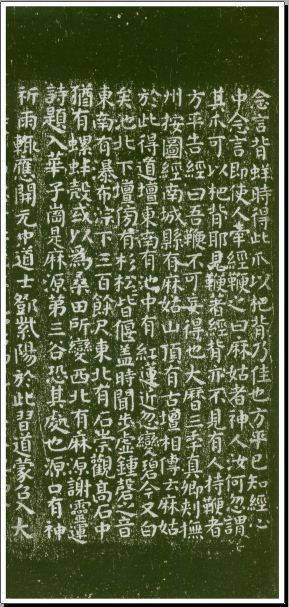 念言背蛘時得此爪以杷背乃佳也方平已知經心
中念言即使人牽經鞭之曰麻姑者神人汝何忽謂
其爪可以杷背耶見鞭著經背亦不見有人持鞭者
方平告經曰吾鞭不可妄得也大曆三秊真卿刺撫
州按圖經南城縣有麻姑山頂有古壇相傳云麻姑
於此得道壇東南有池中有紅蓮近忽變碧今又白
矣池北下壇傍有杉松皆偃蓋時聞步虛鍾磬之音
東南有瀑布淙下三百餘尺東北有石崇觀高石中
猶有螺蚌殼或以為桑田所變西北有麻源謝靈運
詩題入華子岡是麻源第三谷恐其處也源口有神
祈雨輒應開元中道士鄧紫陽於此習道蒙召入大